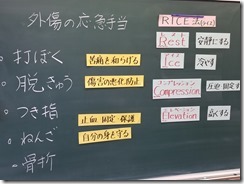 外傷の応急手当
・打ぼく
・脱きゅう
・つき指
・ねんざ
・骨折
苦痛を和らげる
傷害の悪化防止
止血 固定 保護
自分の身を守る
RICE
Rest 安静にする
アイス
Ice 冷やす
コンプレッション
Compression 圧迫・固定する
エレベーション
Elevation 高くする